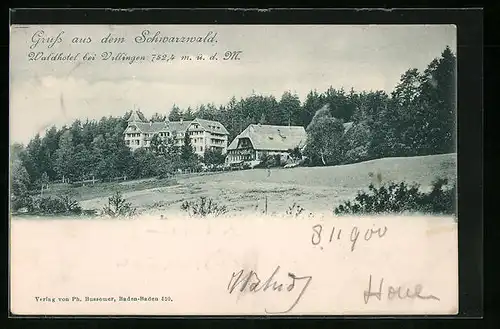 Gruß aus dem Schwarzwald.
Waldhotel bei Villingen 752,4 m. ü. d. M.
8/11 900
Verlag von Ph. Bussemer, Baden-Baden 410.